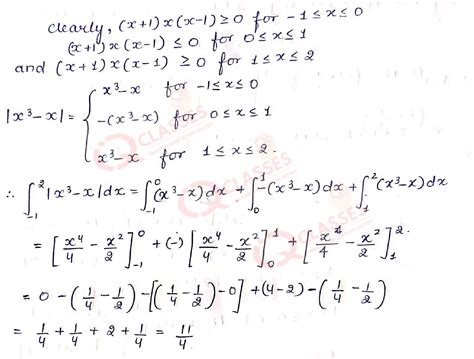 clearly, (x+1)x(x-1) ≥ 0 for -1 ≤ x ≤ 0
(x+1)x(x-1) ≤ 0 for 0 ≤ x ≤ 1
and (x+1)x(x-1) ≥ 0 for 1 ≤ x ≤ 2
|x³-x| = { x³-x for -1 ≤ x ≤ 0
-(x³-x) for 0 ≤ x ≤ 1
x³-x for 1 ≤ x ≤ 2.
∴ ∫₋₁² |x³-x|dx = ∫₋₁⁰ (x³-x)dx + ∫₀¹ -(x³-x)dx + ∫₁² (x³-x)dx
= [x⁴/4 - x²/2]₋₁⁰ + (-)[x⁴/4 - x²/2]₀¹ + [x⁴/4 - x²/2]₁²
= 0 - (1/4 - 1/2) - [(1/4 - 1/2) - 0] + (4-2) - (1/4 - 1/2)
= 1/4 + 1/4 + 2 + 1/4 = 11/4
CLASSES
CLASSES
CLASSES